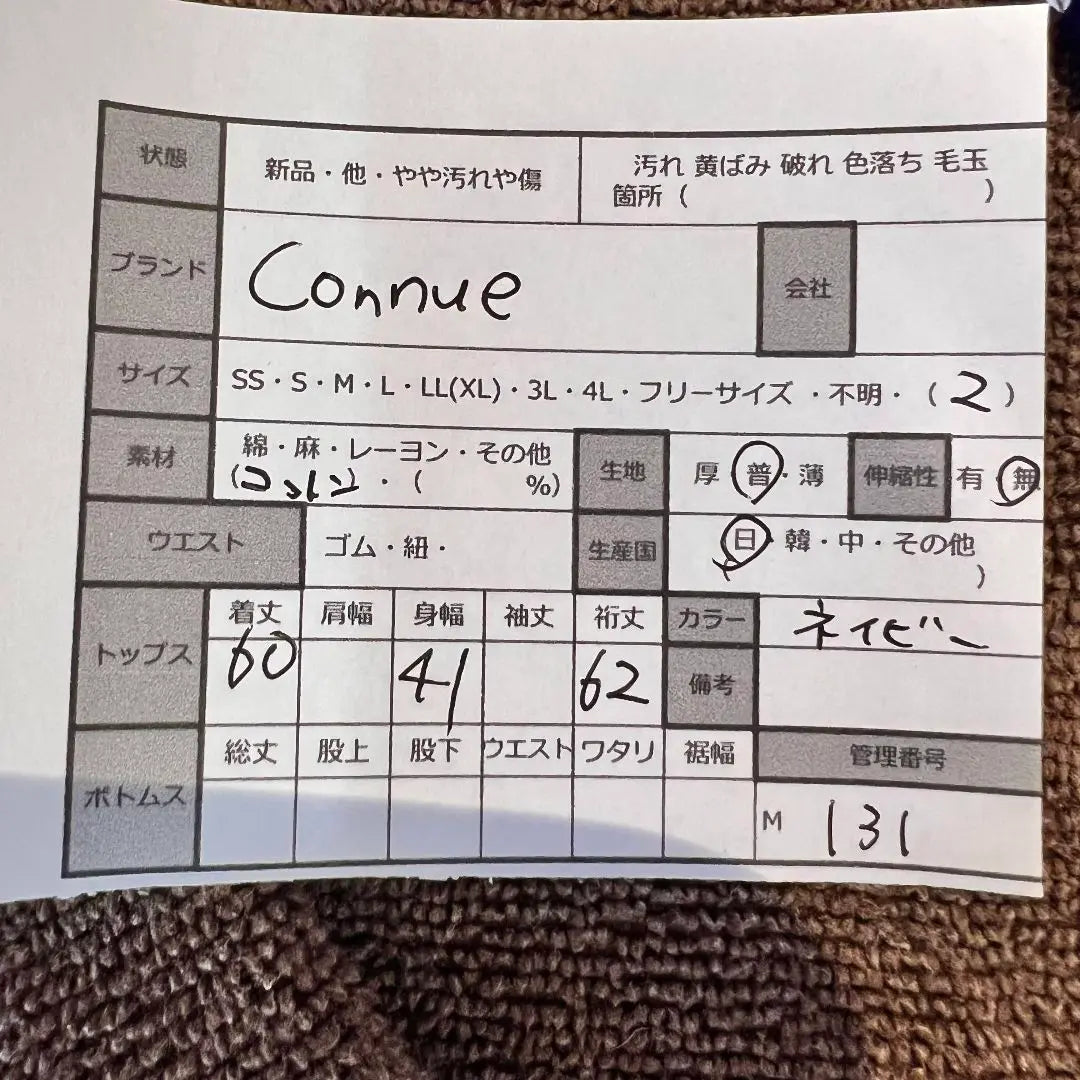 状態 新品・他・やや汚れや傷 汚れ 黄ばみ 破れ 色落ち 毛玉
箇所（ ）
ブランド Connue 会社
サイズ SS・S・M・L・LL(XL)・3L・4L・フリーサイズ ・不明・（2）
素材 綿・麻・レーヨン・その他 生地 厚 普・薄 伸縮性 有 無
(コットン)・（ %)
ウエスト ゴム・紐・ 生産国 日・韓・中・その他
）
トップス 着丈 肩幅 身幅 袖丈 裄丈 カラー ネイビー
60 41 62 備考
ボトムス 総丈 股上 股下 ウエスト ワタリ 裾幅 管理番号
M 131